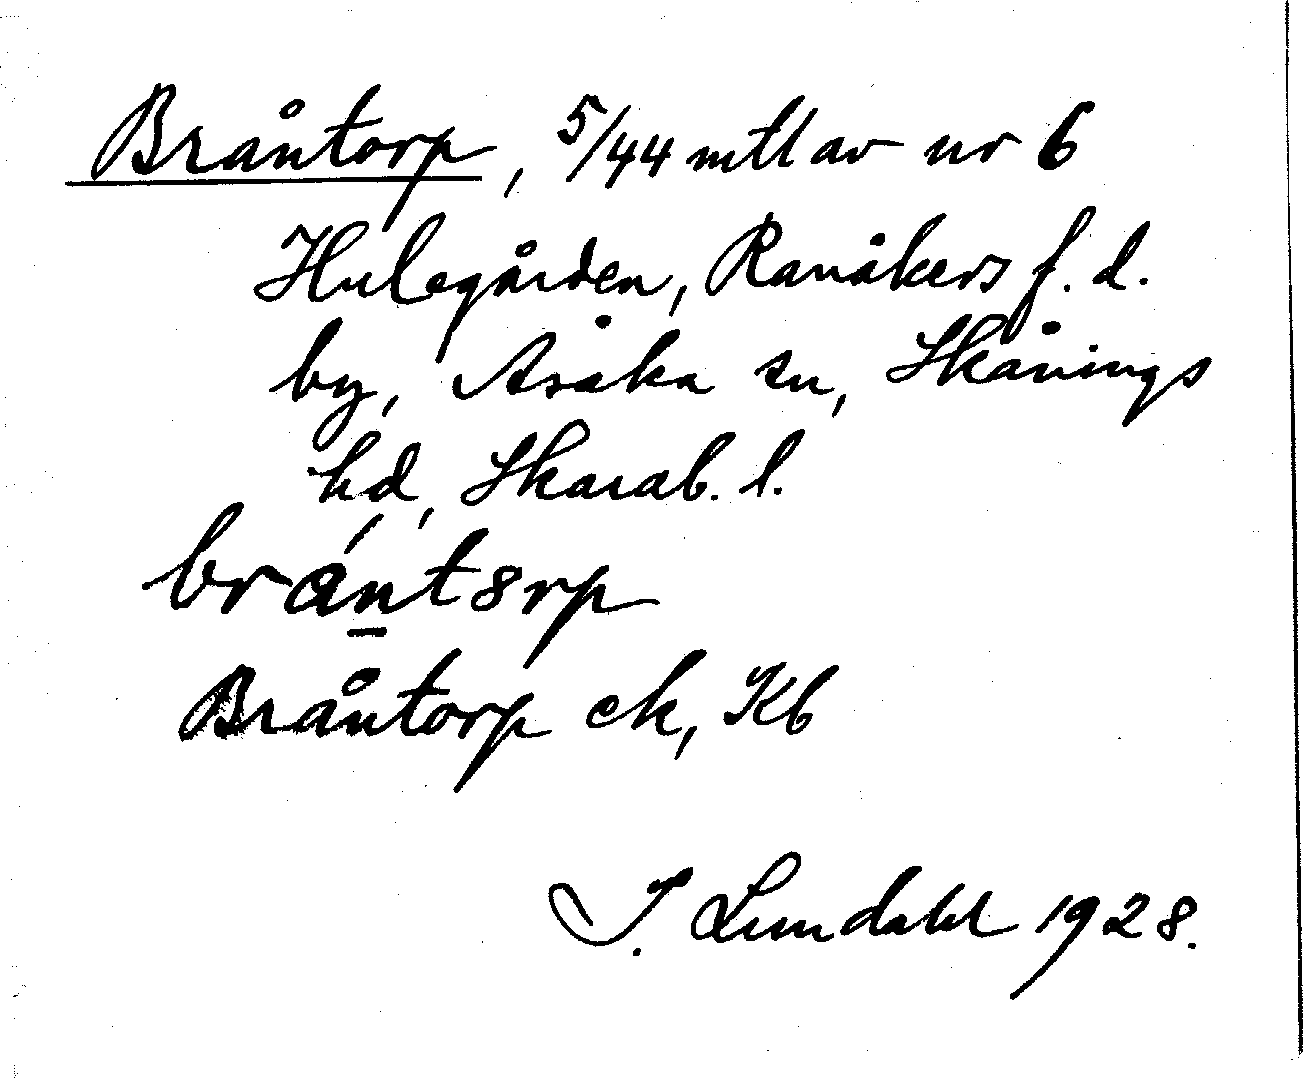 Bråntorp, 5/44 mtl av nr 6
Hulegården, Ranåkers f.d.
by, Åsaka sn, Skånings
hd, Skarab. l.
brántɞrp
Bråntorp ek, Kb
I. Lundahl 1928.